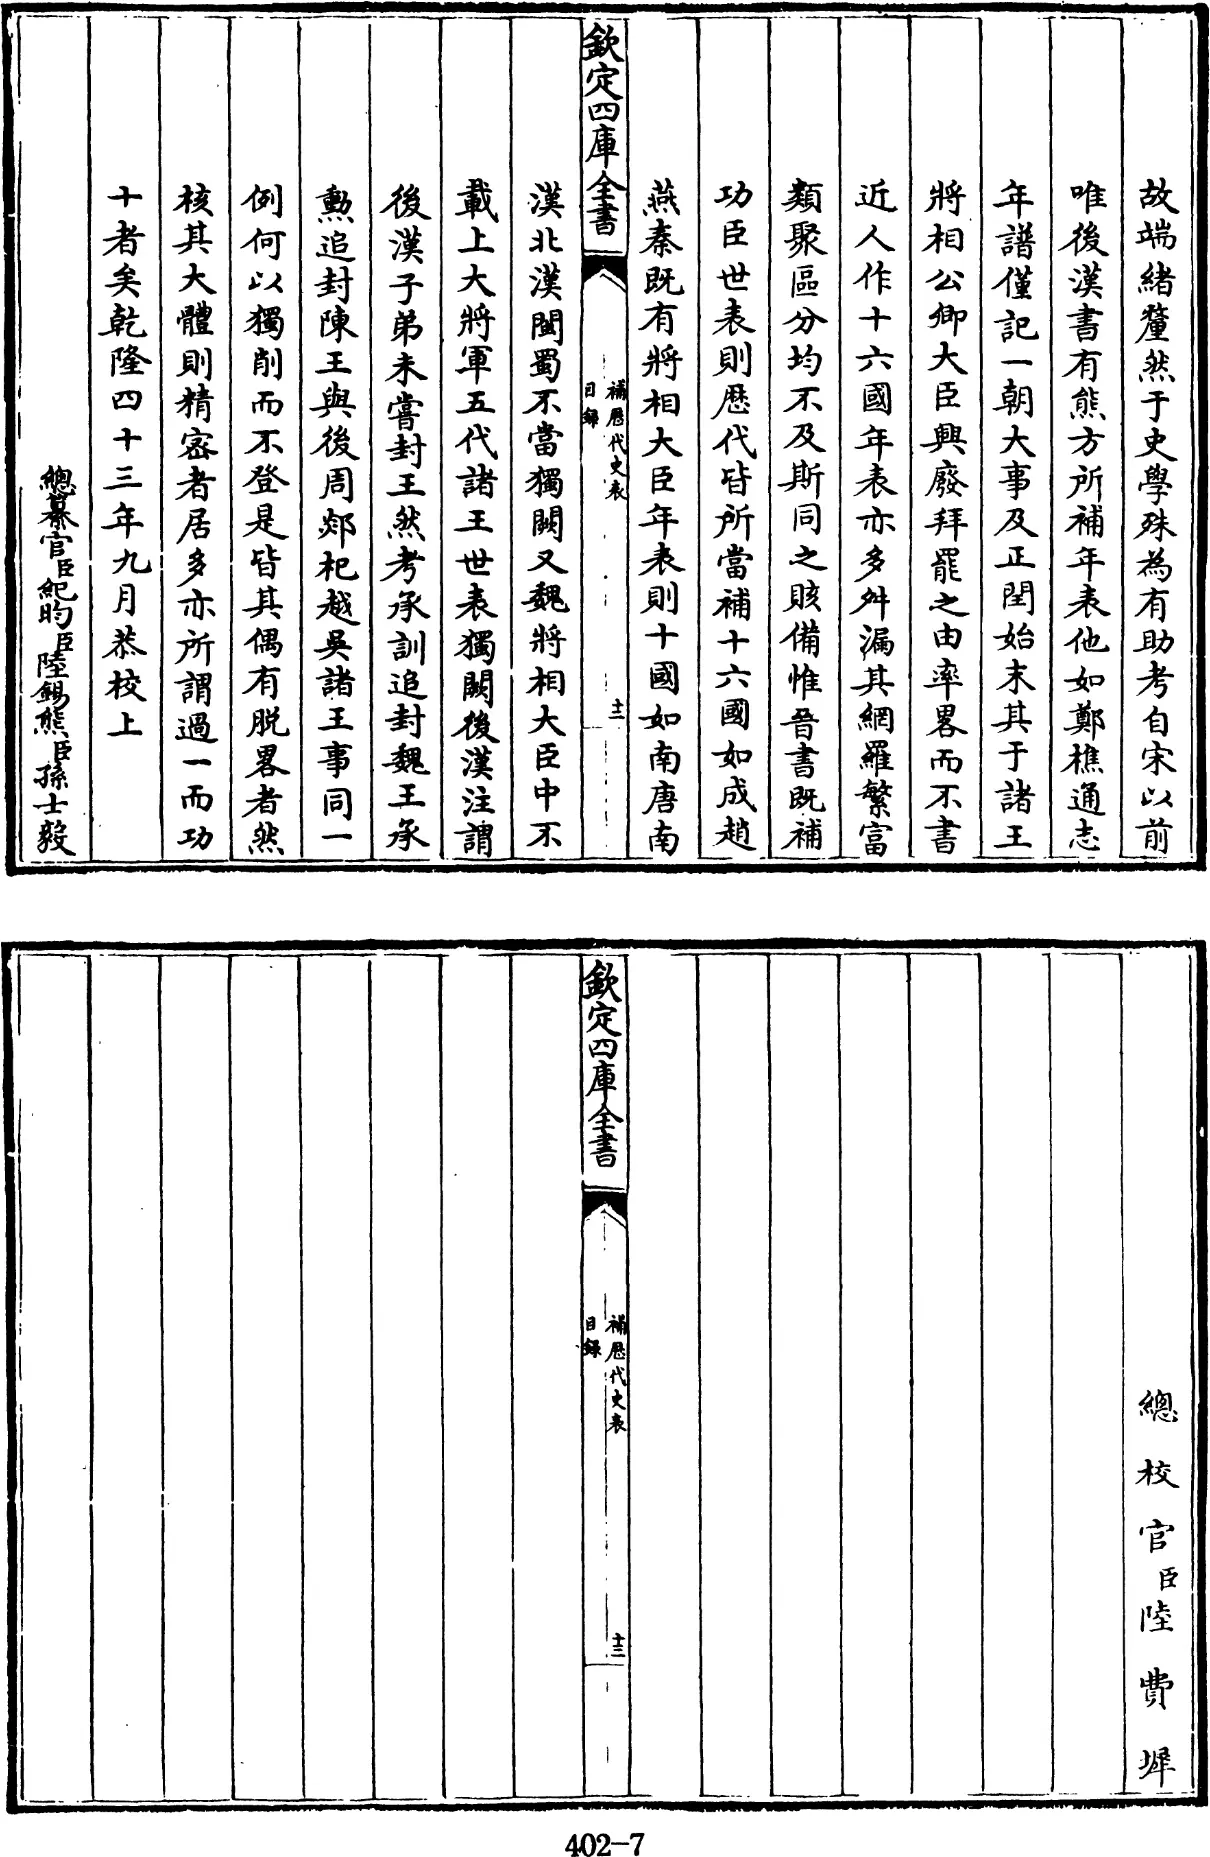 故端緒釐然于史學殊為有助考自宋以前
唯後漢書有熊方所補年表他如鄭樵通志
年譜僅記一朝大事及正閏始末其于諸王
將相公卿大臣興廢拜罷之由率畧而不書
近人作十六國年表亦多舛漏其網羅繁富
類聚區分均不及斯同之賅備惟晉書既補
功臣世表則歴代皆所當補十六國如成趙
燕秦既有將相大臣年表則十國如南唐南
欽定四庫全書
補歴代史表
目録
十二
漢北漢閩蜀不當獨闕又魏將相大臣中不
載上大將軍五代諸王世表獨闕後漢注謂
後漢子弟未嘗封王然考承訓追封魏王承
勳追封陳王與後周郯杞越吳諸王事同一
例何以獨削而不登是皆其偶有脱畧者然
核其大體則精密者居多亦所謂過一而功
十者矣乾隆四十三年九月恭校上
總纂官臣紀昀臣陸錫熊臣孫士毅
總校官臣陸費墀
欽定四庫全書
補歴代史表
目録
十三
402-7